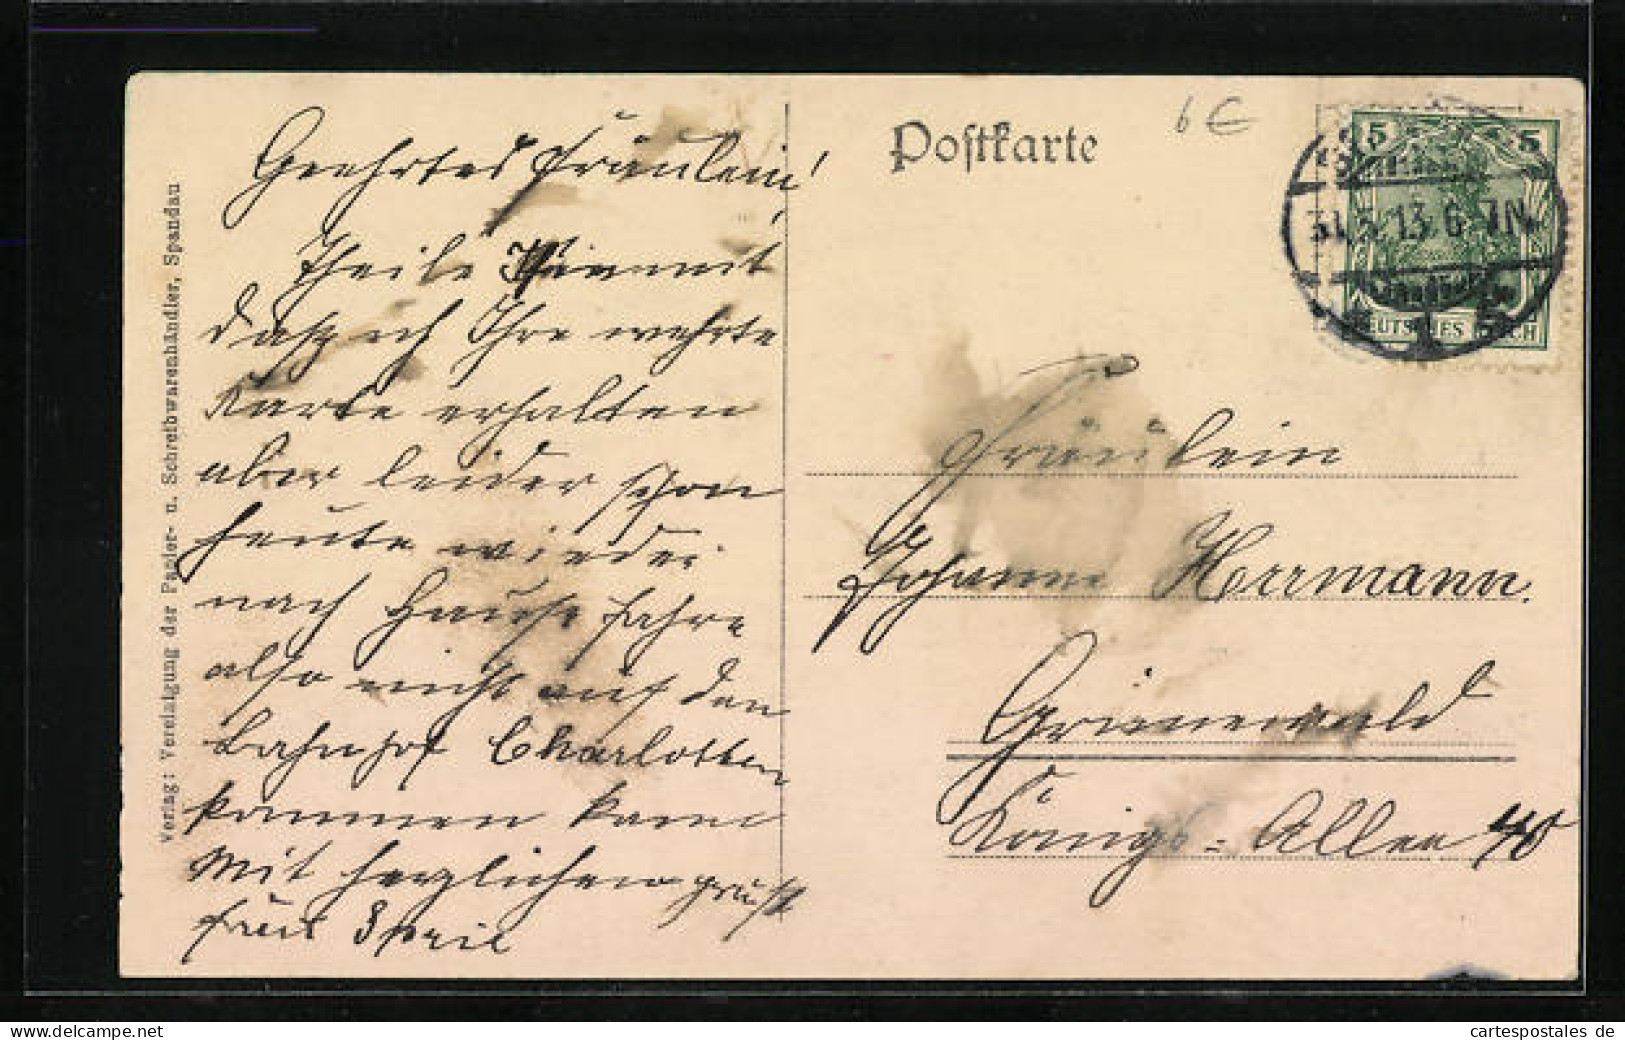 Geehrtes Fräulein!
Theile Ihnen mit
daß ich Ihre werthe
Karte erhalten
aber leider schon
heute wieder
nach Hause fahre
also nicht auf den
Bahnhof Charlotten
kommen kann
Mit herzlichen gruß
Postkarte
6 €
5 5
DEUTSCHES REICH
31.5.13. 6-7N.
1
Fräulein
Johanna Herrmann.
Grünewald
Königs=Allee 40
Verlag: Vereinigung der Papier- u. Schreibwarenhändler, Spandau
cartespostales de